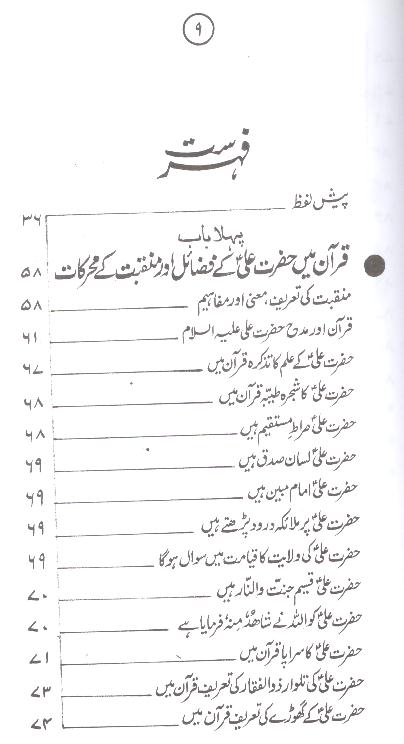 ۹
فہرست
پیش لفظ ۳۶
پہلا باب
قرآن میں حضرت علیؑ کے فضائل اور منقبت کے محرکات ۵۸
منقبت کی تعریف، معنی اور مفاہیم ۵۸
قرآن اور مدح حضرت علی علیہ السلام ۶۱
حضرت علیؑ کے علم کا تذکرہ قرآن میں ۶۷
حضرت علیؑ کا شجرہ طیبہ قرآن میں ۶۸
حضرت علیؑ صراطِ مستقیم ہیں ۶۸
حضرت علیؑ لسان صدق ہیں ۶۹
حضرت علیؑ امام مبین ہیں ۶۹
حضرت علیؑ پر ملائکہ درود پڑھتے ہیں ۶۹
حضرت علیؑ کی ولایت کا قیامت میں سوال ہوگا ۶۹
حضرت علیؑ قسیم جنت والنار ہیں ۷۰
حضرت علیؑ کو اللہ نے شاھدٌ مِنہُ فرمایا ہے ۷۰
حضرت علیؑ کا سراپا قرآن میں ۷۱
حضرت علیؑ کی تلوار ذوالفقار کی تعریف قرآن میں ۷۳
حضرت علیؑ کے گھوڑے کی تعریف قرآن میں ۷۴